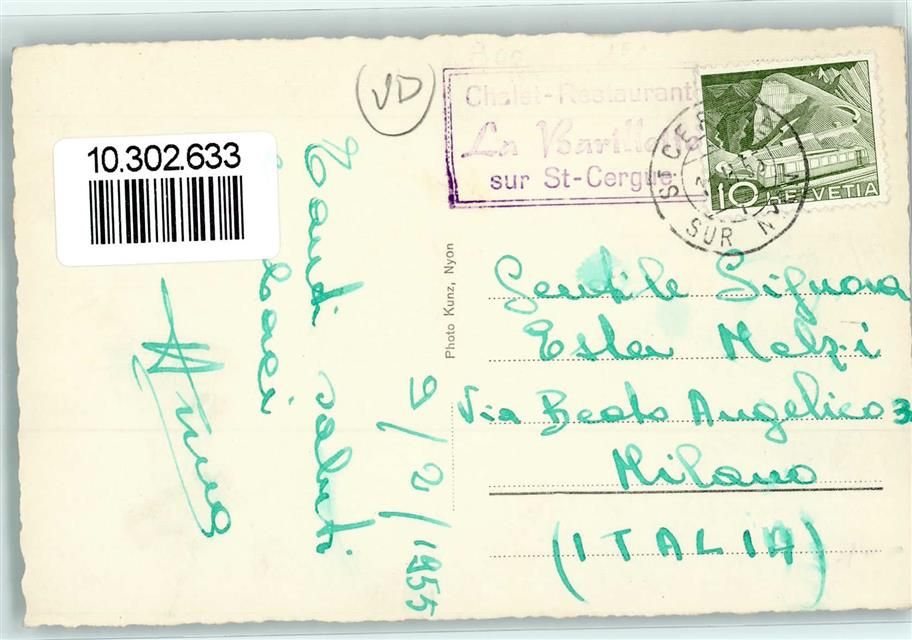 VD
10.302.633
Chalet-Restaurant
La Barillette
sur St-Cergue
ST CERGUE
SUR NYON
10 HELVETIA
Photo Kunz, Nyon
Tanti saluti
cari
9/2/1955
Gentile Signora
Ester Melzi
Via Beato Angelico 3
Milano
(ITALIA)